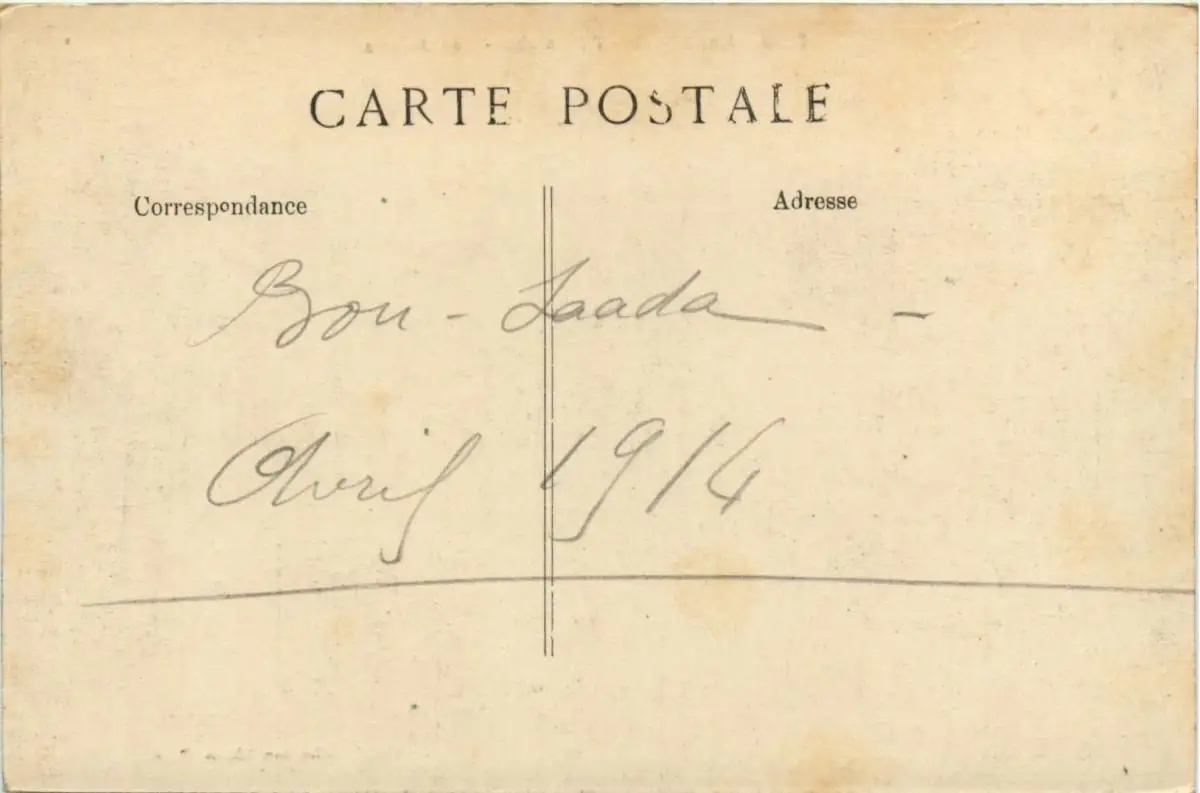 CARTE POSTALE
Correspondance
Adresse
Bou-Saada -
Avril 1914